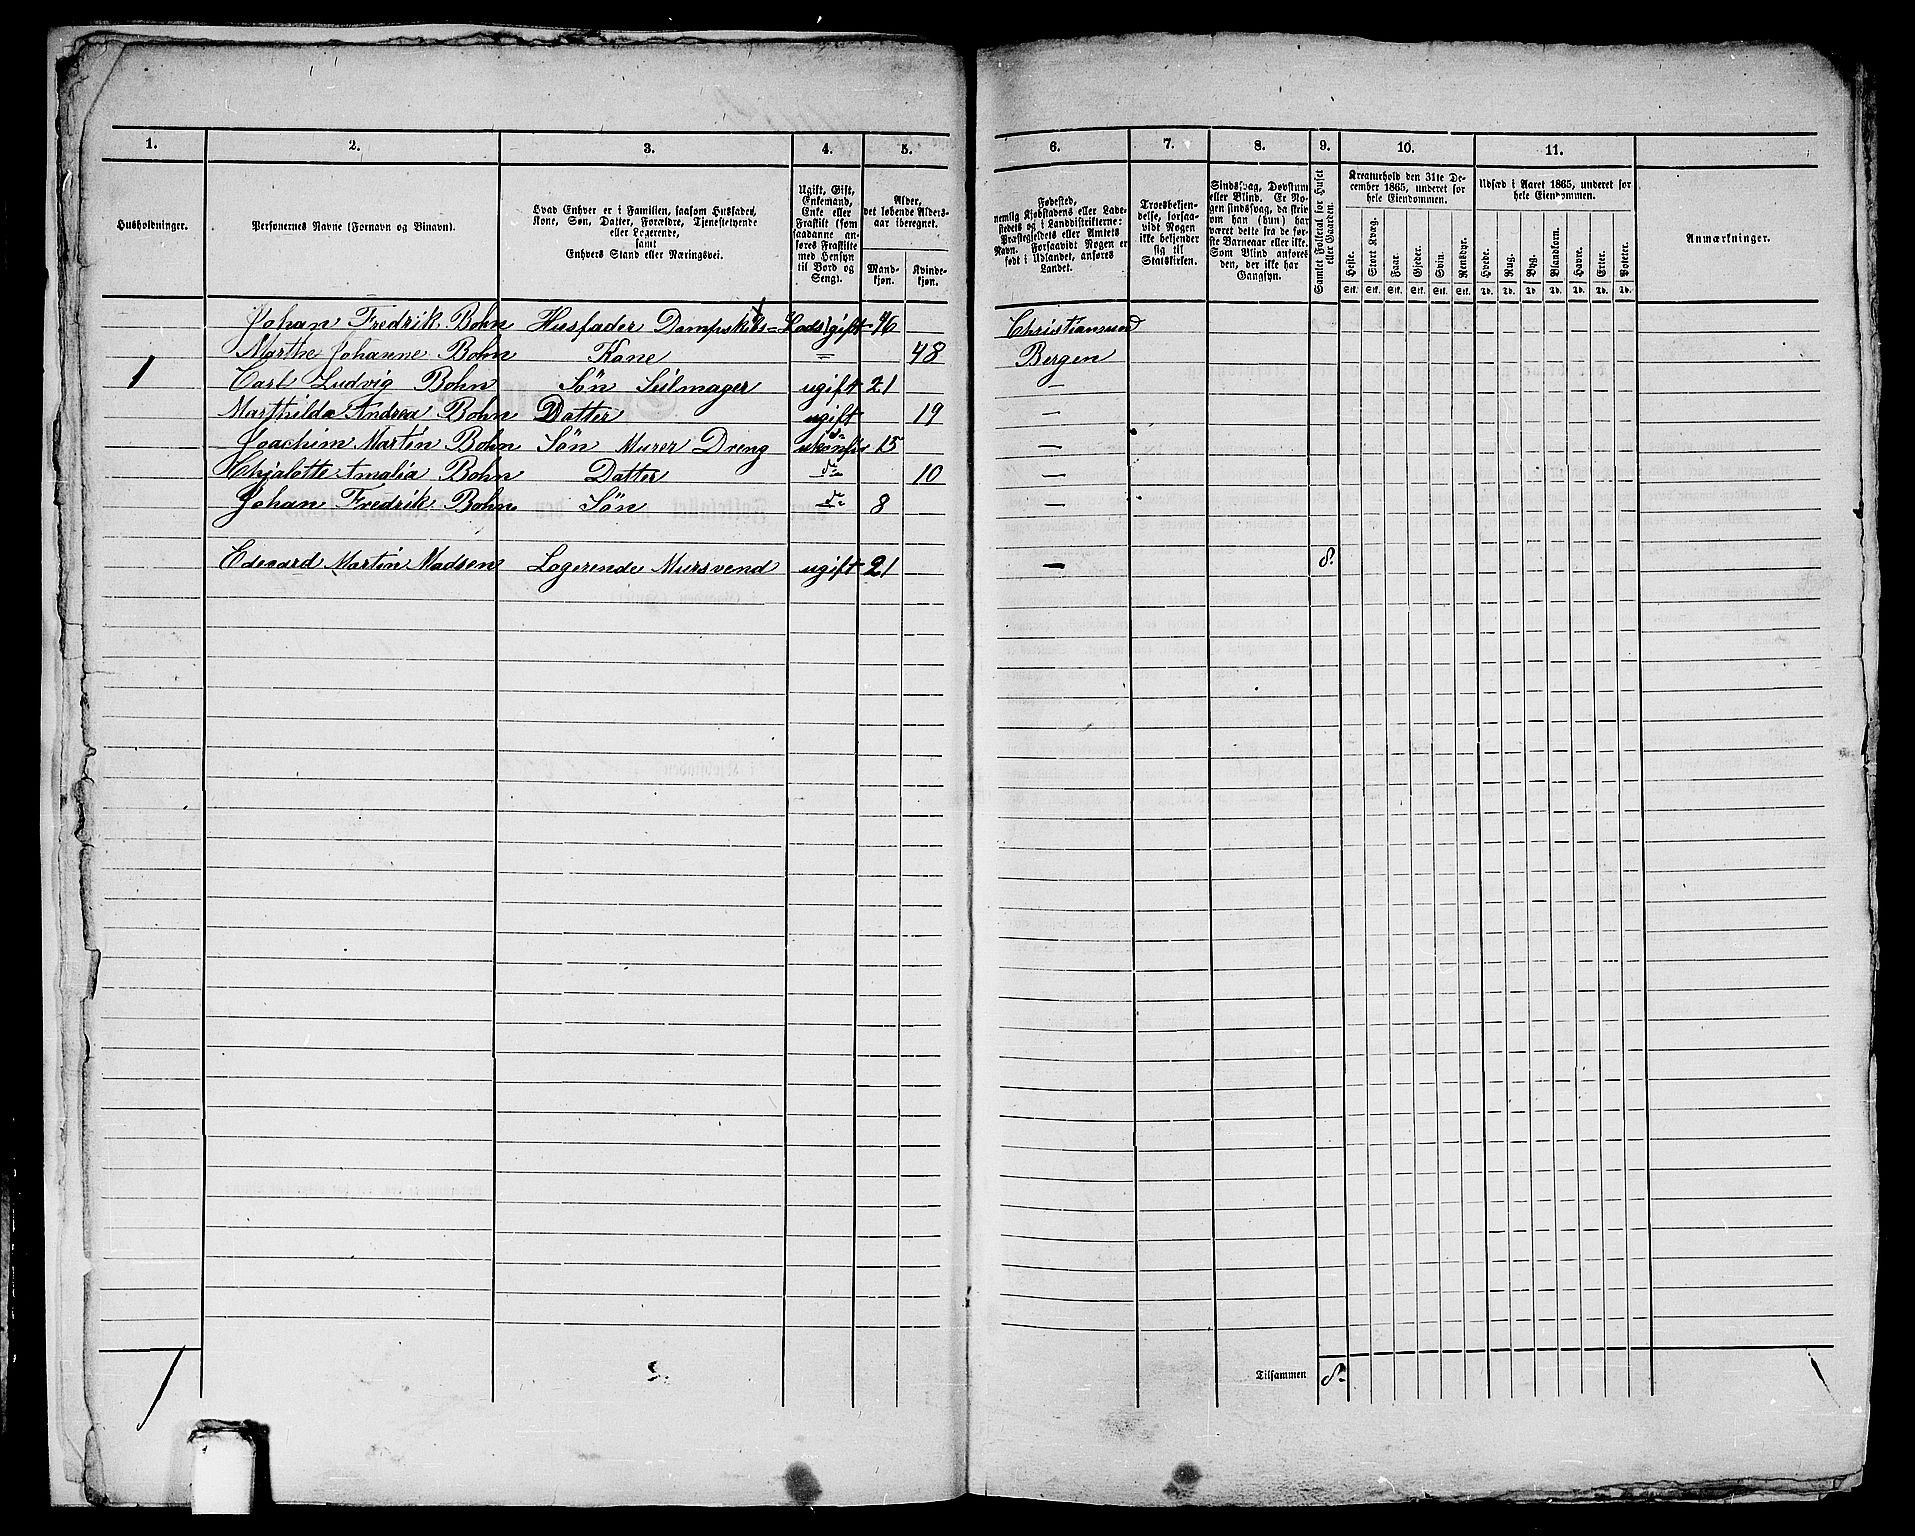 1. 2. 3. 4. 5. 6. 7. 8. 9. 10. 11.
Husholdninger.
Personernes Navne (Fornavn og Binavn).
Hvad Enhver er i Familien, saasom Husfader,
Kone, Søn, Datter, Forældre, Tjenestetyende
eller Logerende,
samt
Enhvers Stand eller Næringsvei.
Ugift, Gift,
Enkemand,
Enke eller
Fraskilt (som
saadanne an-
føres Fraskilte
med Hensyn
til Bord og
Seng).
Alder,
det løbende Alders-
aar iberegnet.
Mand-
kjøn.
Kvinde-
kjøn.
Fødested,
nemlig Kjøbstadens eller Lade-
stedets og i Landdistrikterne:
Præstegjeldets eller Amtets
Navn. Forsaavidt Nogen er
født i Udlandet, anføres
Landet.
Troesbekjen-
delse, forsaa-
vidt Nogen
ikke bekjender
sig til
Statskirken.
Sindssvag, Døvstum
eller Blind. Er No-
gen sindssvag, da skriv
om han (hun) har
været dette fra de før-
ste Barneaar eller ikke.
Som Blind anføres
den, der ikke har
Gangsyn.
Samlet Folketal for Huset
eller Gaarden.
Kreaturhold den 31te De-
cember 1865, underet for
hele Eiendommen.
Heste. Stort Kvæg. Faar. Gjeder. Svin. Rensdyr.
Stk. Stk. Stk. Stk. Stk. Stk.
Udsæd i Aaret 1865, underet for
hele Eiendommen.
Hvede. Rug. Byg. Blandkorn. Havre. Erter. Poteter.
Td. Td. Td. Td. Td. Td. Td.
Anmærkninger.
Johan Fredrik Bohn Husfader Dampskibs=Lods gift 46 Christiansund
Marthe Johanne Bohn Kone = 48 Bergen
1 Carl Ludvig Bohn Søn Seilmager ugift 21 —
Marthilda Andrea Bohn Datter ugift 19 —
Joachim Martin Bohn Søn Murer Dreng 15 —
Amalia Bohn Datter do 10 —
Johan Fredrik Bohn Søn do 8 —
Edevard Martin Madsen Logerende Mursvend ugift 21 — 8.
1
Tilsammen 8.